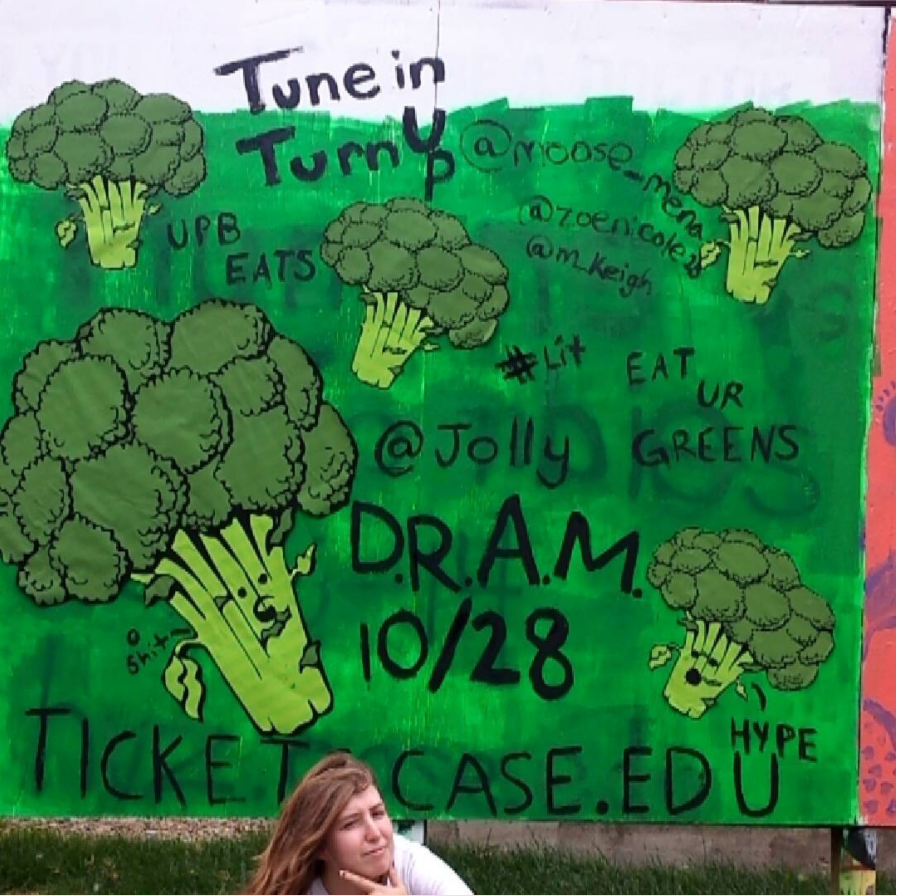 Tune in
Turn Up
@moose_mena
@zoenicole23
@m_keigh
UPB
EATS
#Lit
EAT
UR
GREENS
@Jolly
D.R.A.M.
10/28
O
Shit
HYPE
TICKETS CASE.EDU